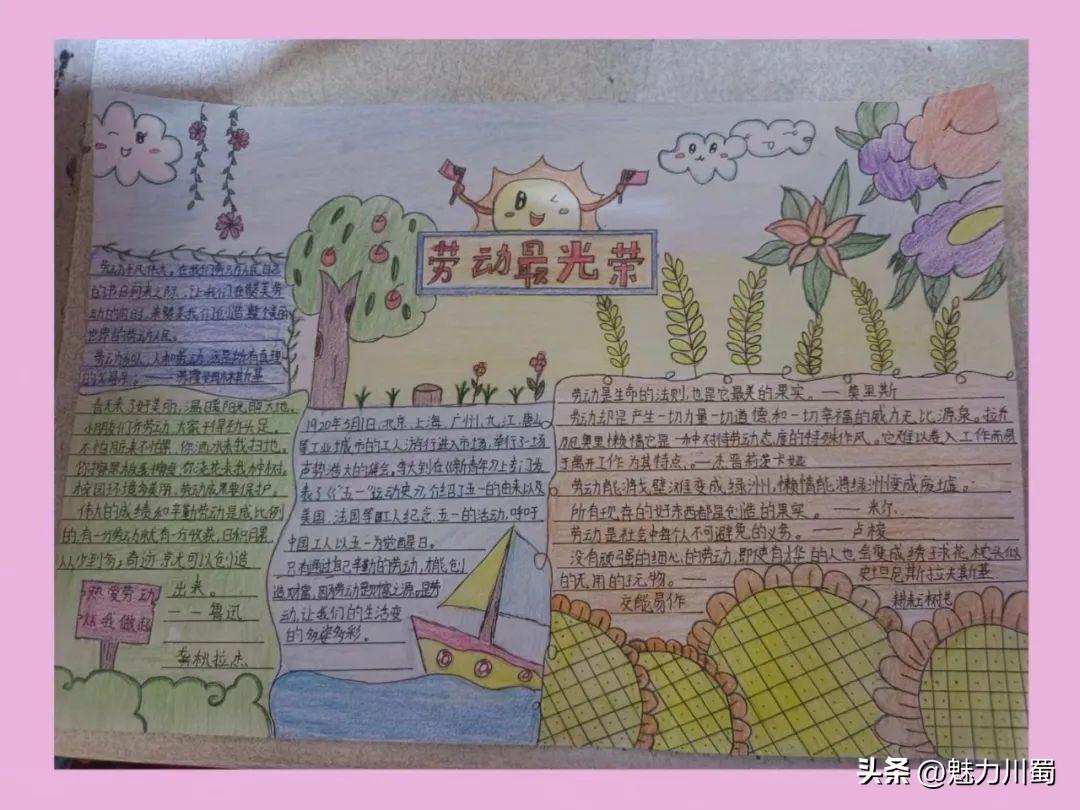 劳动最光荣
劳动最伟大。在我们劳动人民自己
的节日到来之际，让我们在赞美劳
动的同时，来赞美我们创造整个
世界的劳动人民。
劳动创人，人和劳动，这是所有真理
春天来了好美丽，温暖阳光照大地。
小朋友们齐劳动，大家干得劲头足。
不怕脏来不怕累，你洒水来我扫地。
你擦黑板，你浇花来我
校园环境多美丽，劳动成果要保护。
伟大的成绩和辛勤劳动是成比例
的，有一分劳动就有一分收获，日积月累，
从少到多，奇迹就可以创造
出来。
——鲁迅
热爱劳动
从我做起
1920年5月1日，北京、上海、广州、九江、唐山
等工业城市的工人游行进入市场，举行了一场
声势浩大的集会。李大钊在《新青年》上专门发
表了《"五一"运动史》，介绍了五一的由来以及
美国、法国等工人纪念五一的活动，呼吁
中国工人以五一为觉醒日。
只有通过自己辛勤的劳动，才能创
造财富，因为劳动是财富之源。是劳
动，让我们的生活变
的多姿多彩。
劳动是生命的法则，也是它最美的果实。——莫里斯
劳动却是产生一切力量一切道德和一切幸福的威力无比源泉。拉乔
尼奥里懒惰它是一种对待劳动态度的特殊作风。它难以卷入工作而易
于离开工作为其特点。——杰普莉茨卡娅
劳动能将戈壁滩变成绿洲，懒惰能将绿洲变成废墟。
所有现存的好东西都是创造的果实。——米尔
劳动是社会中每个人不可避免的义务。——卢梭
没有顽强的细心的劳动，即使有才华的人也会变成绣花枕头似
的无用的玩物。——史坦尼斯拉夫斯基
头条 @魅力川蜀